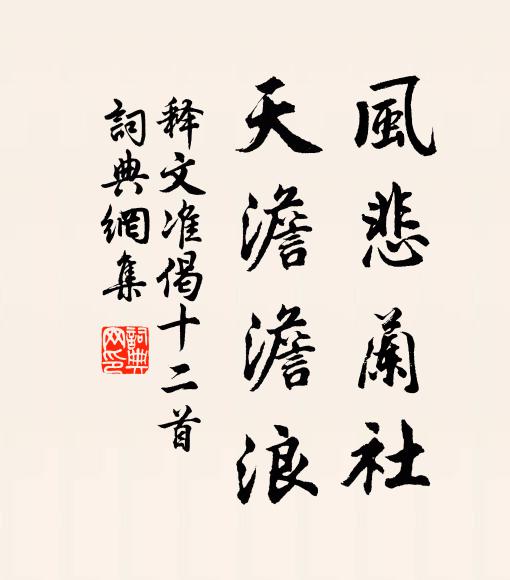 風悲蘭社
天澹澹浪
释文准偈十二首
詞典網集
詞典網印